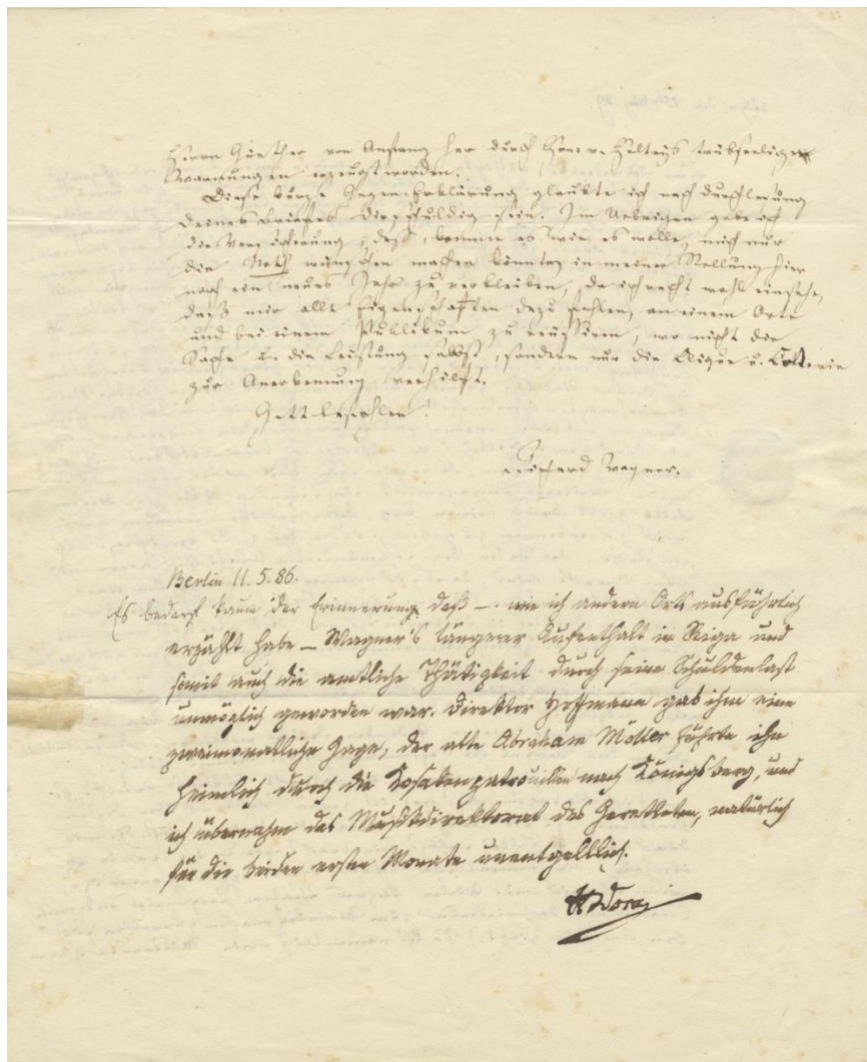 Herrn Günther von Anfang her durch Herrn v. Holtey's trübseeligen
Warnungen erzeugt worden.
Diese kurze Gegen-Erklärung glaubte ich nach Durchlesung
Deines Briefes Dir schuldig sein. Im Uebrigen gebe ich
die Versicherung, daß, komme es wie es wolle, mich nur
die Noth wünschen machen könnte, in meiner Stellung hier
noch ein neues Jahr zu verbleiben, da ich recht wohl einsehe,
daß mir alle Eigenschaften dazu fehlen, an einem Orte
und bei einem Publikum zu reüssiren, wo nicht die
Sache u. die Leistung selbst, sondern nur die Clique u. Cotterie
zur Anerkennung verhilft.
Gott befohlen!
Richard Wagner.
Berlin 11.5.86.
Es bedarf kaum der Erinnerung, daß – wie ich andern Orts ausführlich
erzählt habe – Wagner's längerer Aufenthalt in Riga und
somit auch die amtliche Thätigkeit durch seine Schuldenlast
unmöglich geworden war. Direktor Hoffmann gab ihm eine
zweimonatliche Gage, der alte Abraham Möller führte ihn
heimlich durch die Kosakenpatrouillen nach Königsberg, und
ich übernahm das Musikdirektorat des Geretteten, natürlich
für die beiden ersten Monate unentgeltlich.
HDorn